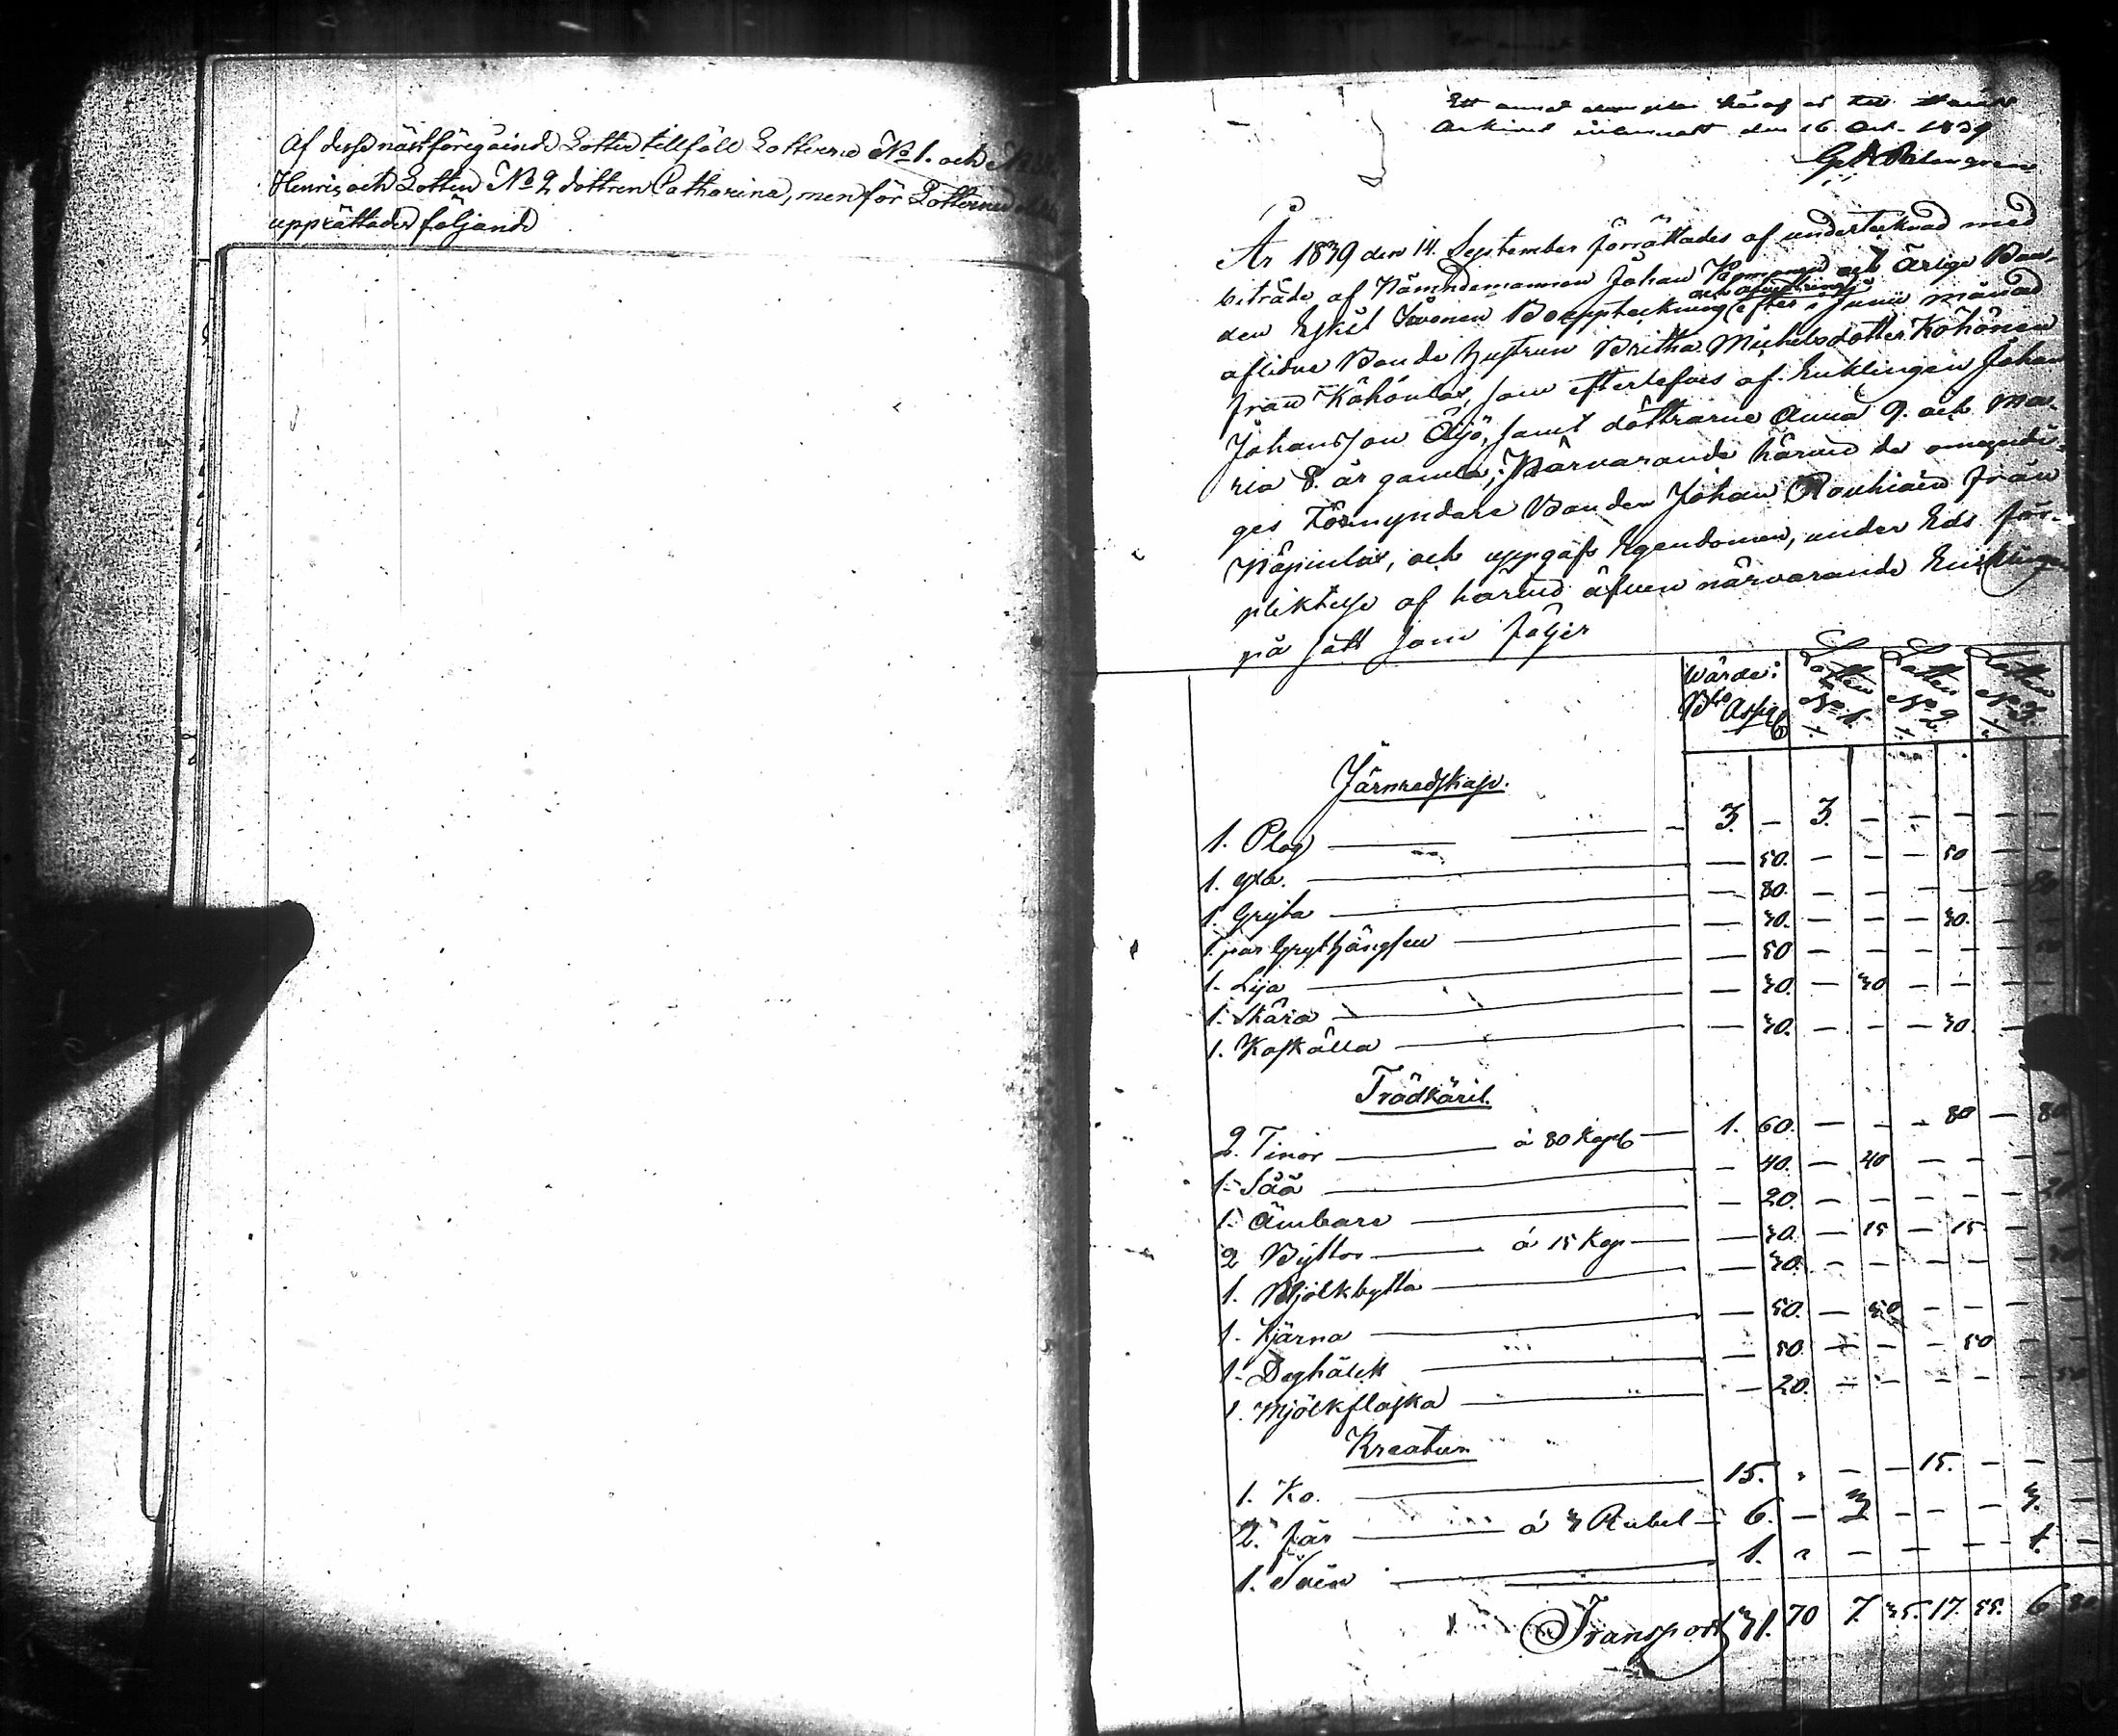 Af desse nästföregående Lotter tillföll Lotterne No 1. och
Henric och Lotten No 2 dottren Catharina, men för Lotterne
upprättades följande
Ett annat exemplar häraf är till
Arkivet inlemnadt den 16 Oct. 1839
År 1839 den 14. September förrättades af undertecknad med
biträde af Nämndemannen Johan och Ärlige Bon-
den Eskil Bouppteckning och afvittring efter i Junii månad
aflidne Bonde hustrun Britha Michelsdotter Kohonen
från Kohonlax, som efterlefves af Enklingen Johan
Johansson Öljö, samt döttrarne Anna 9. och Ma-
ria 8. år gamla; Närvarande härvid de omyndi-
ges Förmyndare Bonden Johan Rouhiain från
och uppgafs Egendomen, under Eds för-
pliktelse af härvid äfven närvarande Enklingen
på sätt som följer
Wärde: Lotten Lotten Lotten
Bco Ass. No 1. No 2. No 3.
Järnredskap.
1. Plog — 3. — 3. — — — — —
1. yxa. — — 50. — — — 50 — —
1. Gryta — — 80. — — — — — 80
1. par Grythängslen — — 30. — — — 30. — —
1. Lija — — 50 — — — — — 50
1. Skära — — 30. — 30 — — — —
1. Koskälla — — 30. — — — 30. —
Trädkäril.
2. Tinor — á 80 Kop — 1. 60. — — — 80 — 80
1. Såå — — 40. — 40 — — — —
1. Ämbare — — 20. — — — — — 20
2 Byttor — á 15 Kop — — 30. — 15 — 15 —
1. Mjölkbytta — — 30. — — — — — 30
1. Kjärna — — 50. — 50 — — — —
1. Deghålck — — 50. — — — 50 —
1. Mjölkflaska — — 20. — — — — —
Kreatur
1. Ko. — 15. — — 15. — — —
2. Får — á 3 Rubel — 6. — 3 — — — 3. —
1. — 1. — — — — 1. —
Transport 31. 70 7. 35. 17. 55. 6 80